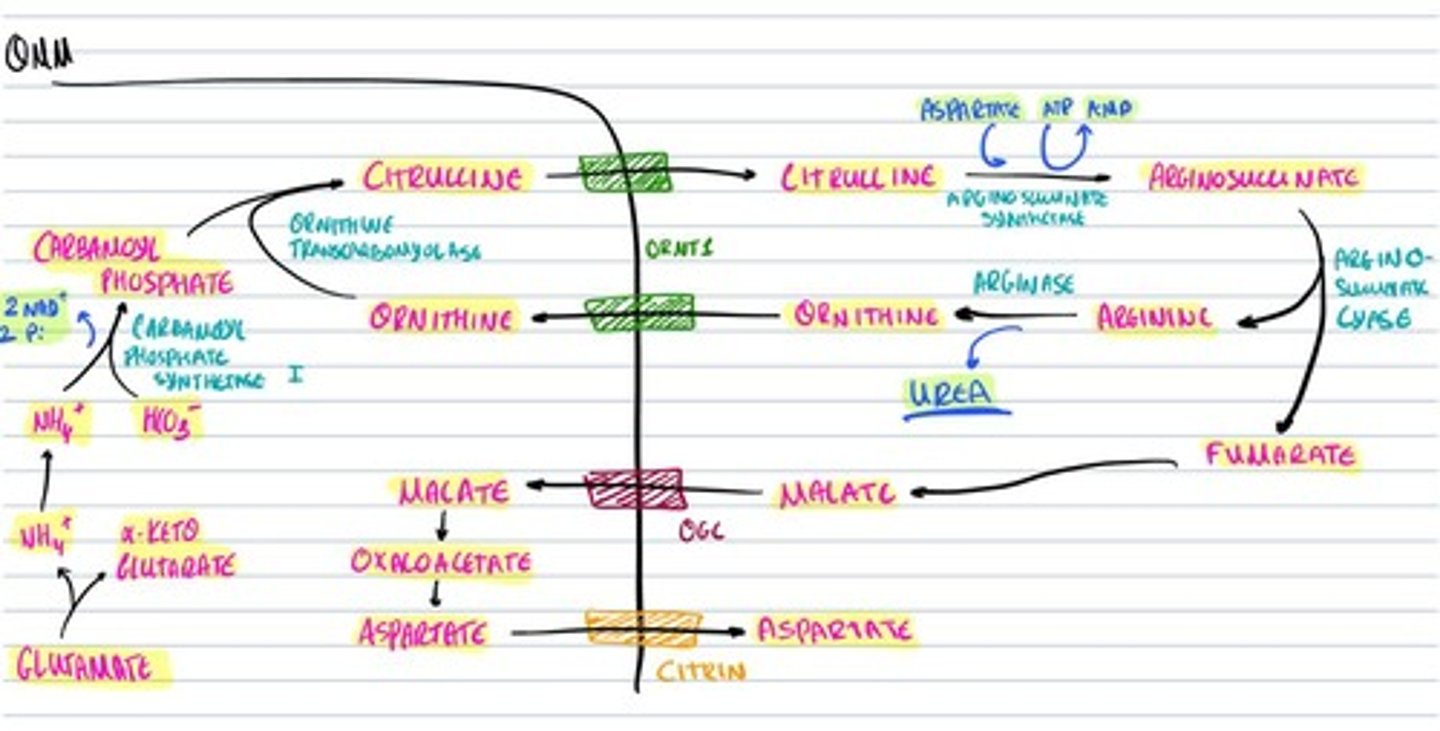 OMM
ASPARTATE ATP AMP
CITRULLINE
CITRULLINE
ARGINOSUCCINATE
ARGINOSUCCINATE
SYNTHETASE
ORNITHINE
TRANSCARBOMYOLASE
ORNT1
CARBAMOYL
PHOSPHATE
ARGINO-
SUCCINATE
LYASE
ARGINASE
2 NAD+
2 Pi
CARBAMOYL
PHOSPHATE
SYNTHETASE I
ORNITHINE
ORNITHINE
ARGININE
UREA
NH4+
HCO3-
FUMARATE
MALATE
MALATE
OGC
NH4+
α-KETO
GLUTARATE
OXALOACETATE
ASPARTATE
ASPARTATE
GLUTAMATE
CITRIN